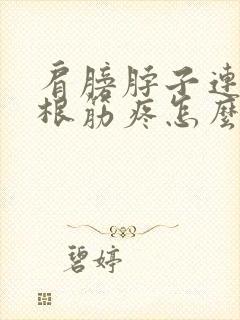 肩膀脖子連
根筋疼怎麼
碧婷